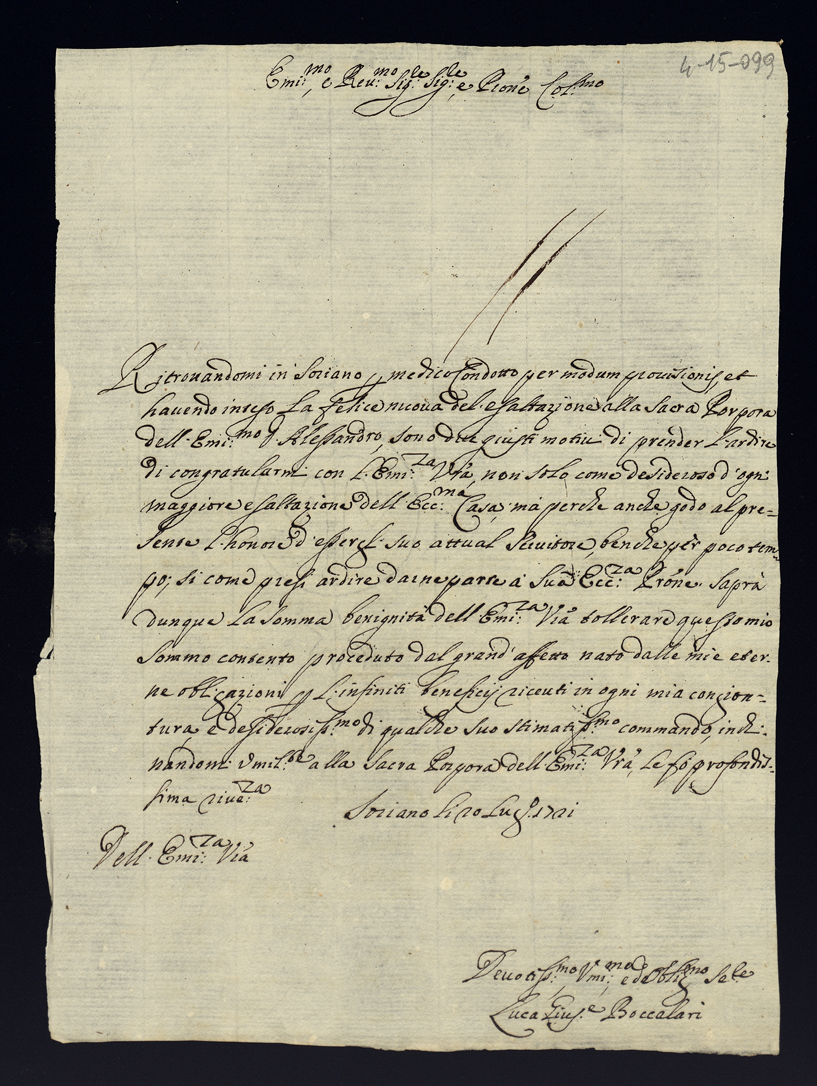 4-15-099
Emi:mo e Reu:mo Sig:le Sig:le e Prone Col:mo
Ritrouandomi in Soriano p medico Condotto per modum prouisionis, et
hauendo inteso la felice nuoua del esaltazione alla Sacra Porpora
dell Emi:mo d'Alessandro, sono due giusti motiui di prender l'ardire
di congratularmi con l'Emi:za Vrã, non solo come desideroso d'ogni
maggiore esaltazione dell Ecc:ma Casa, mà perche anche godo al pre=
sente l'honore d'essergli suo attual Seruitore, benche per poco tem=
po; si come presi ardire darne parte à Suã Ecc:za Prõne. Saprà
dunque la somma benignità dell Emi:za Vrã tollerare questo mio
sommo contento proceduto dal grand'affetto nato dalle mie eter=
ne obligazioni p l'infiniti beneficij riceuti in ogni mia congion=
tura, e desiderosiss:mo di qualche suo stimatiss:mo commando, inchi=
nandomi Vmil:te alla Sacra Porpora dell Emi:za Vrã, le fò profondis=
sima riue:za
Soriano li 20 Lug:o 1721
Dell Emi:za Vrã
Deuotiss:mo Vmi:mo ed Oblig:mo Se:le
Luca Gius:e Boccalari